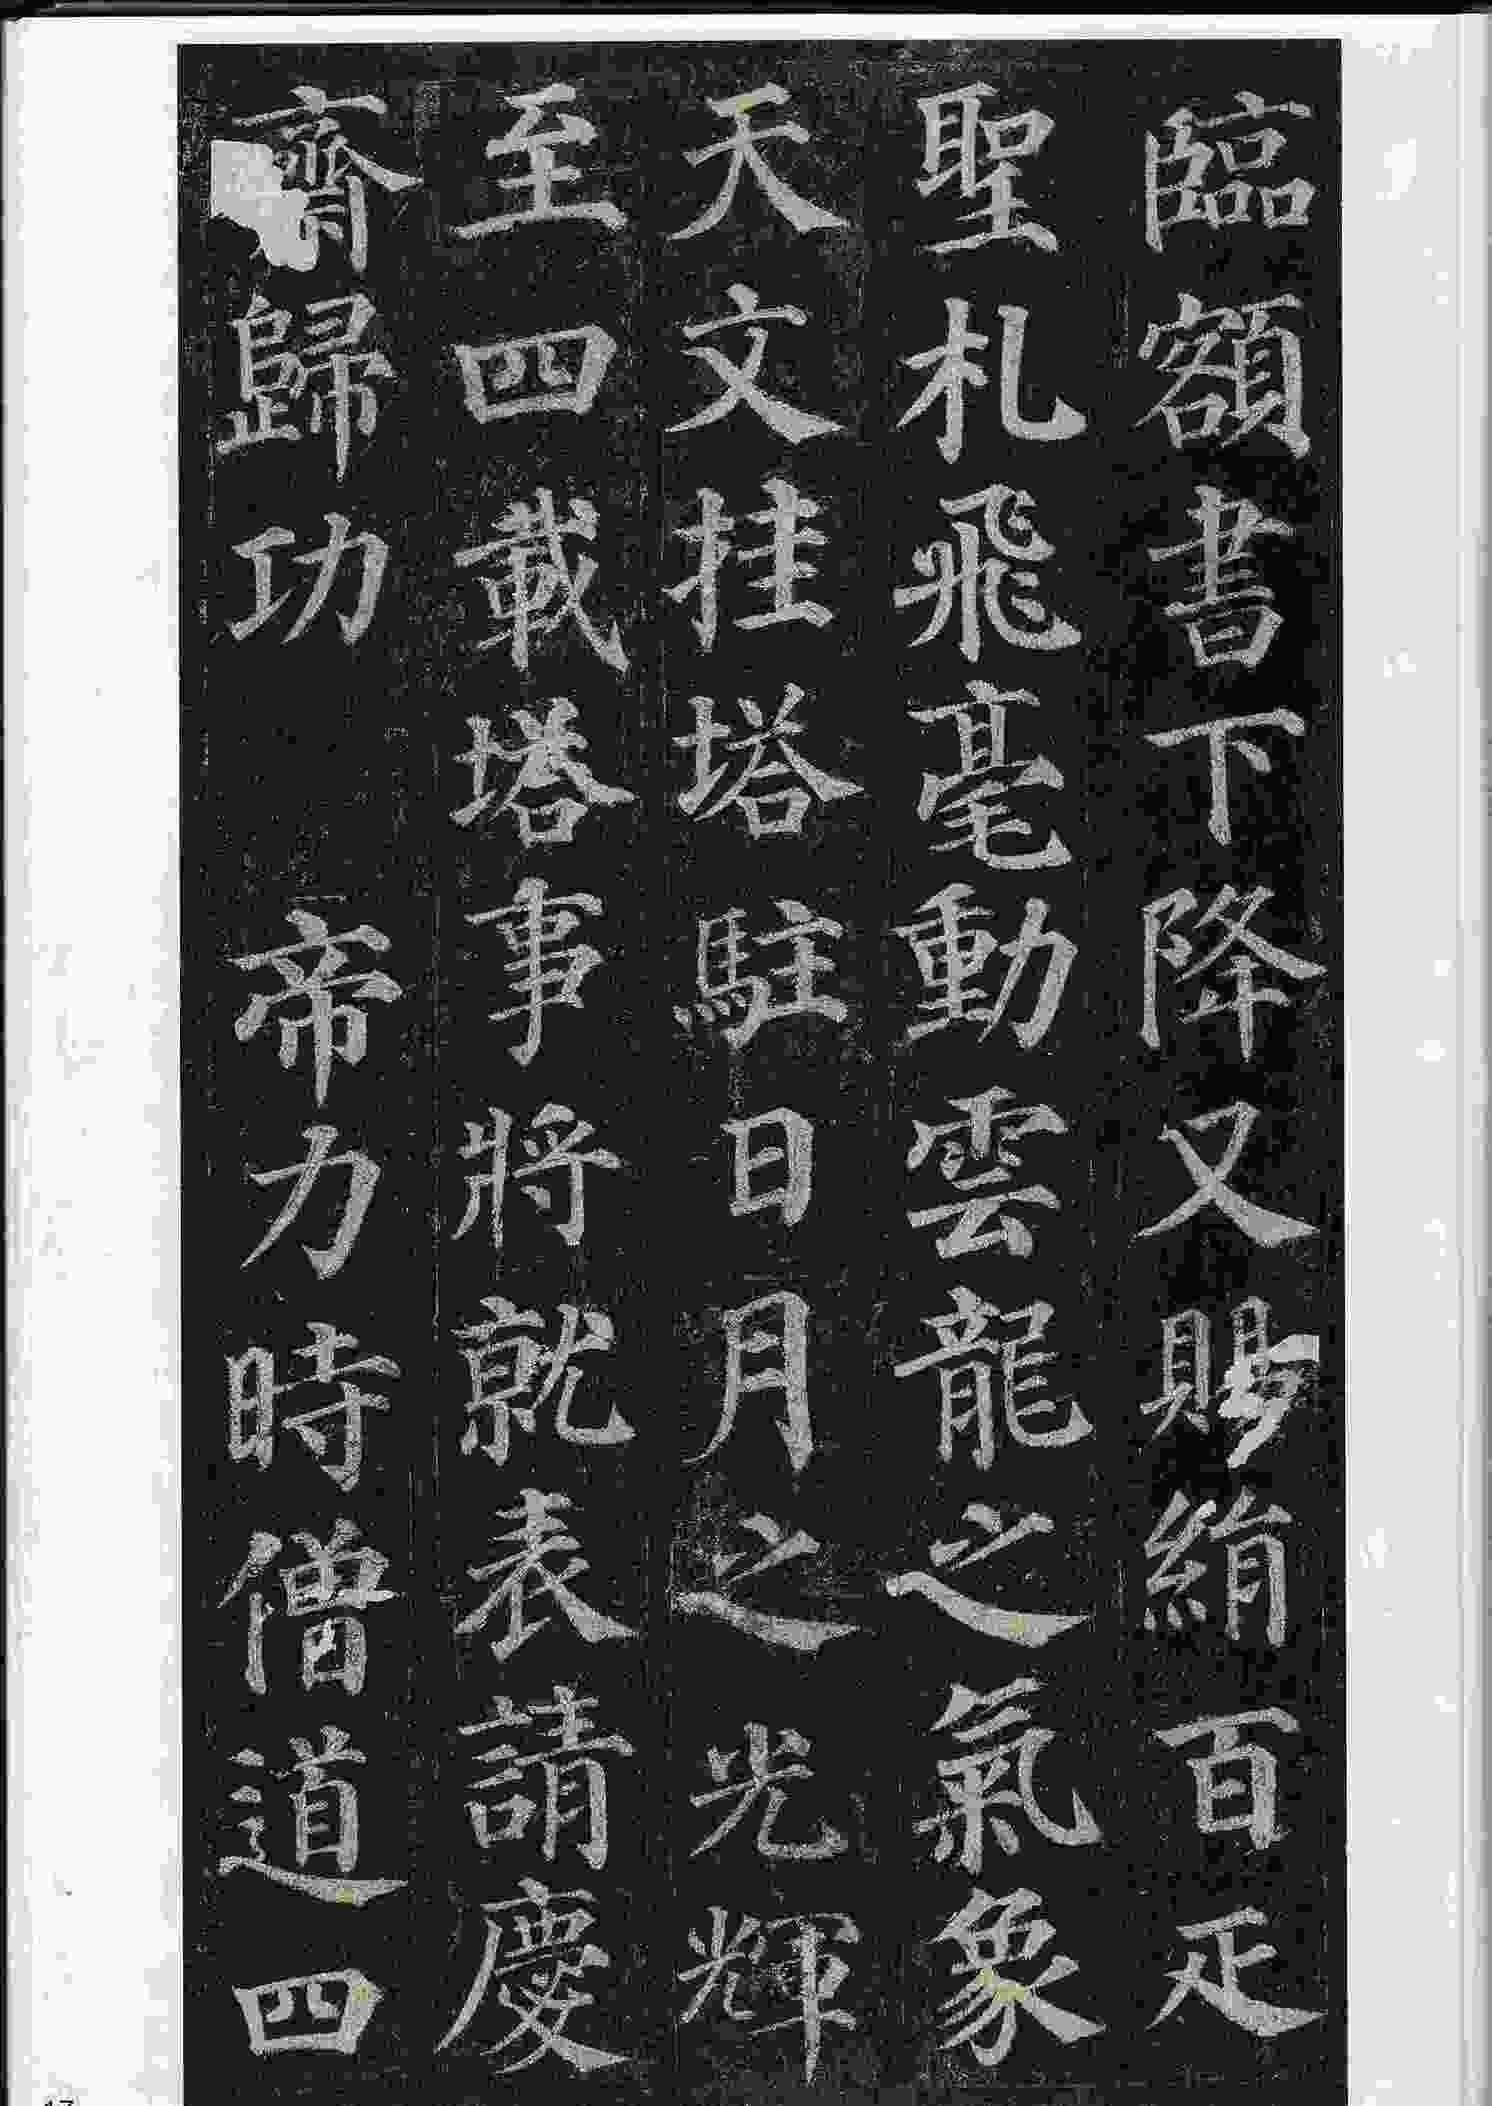 臨額書下降又賜絹百疋
聖札飛毫動雲龍之氣象
天文挂塔駐日月之光輝
至四載塔事將就表請慶
齋歸功帝力時僧道四